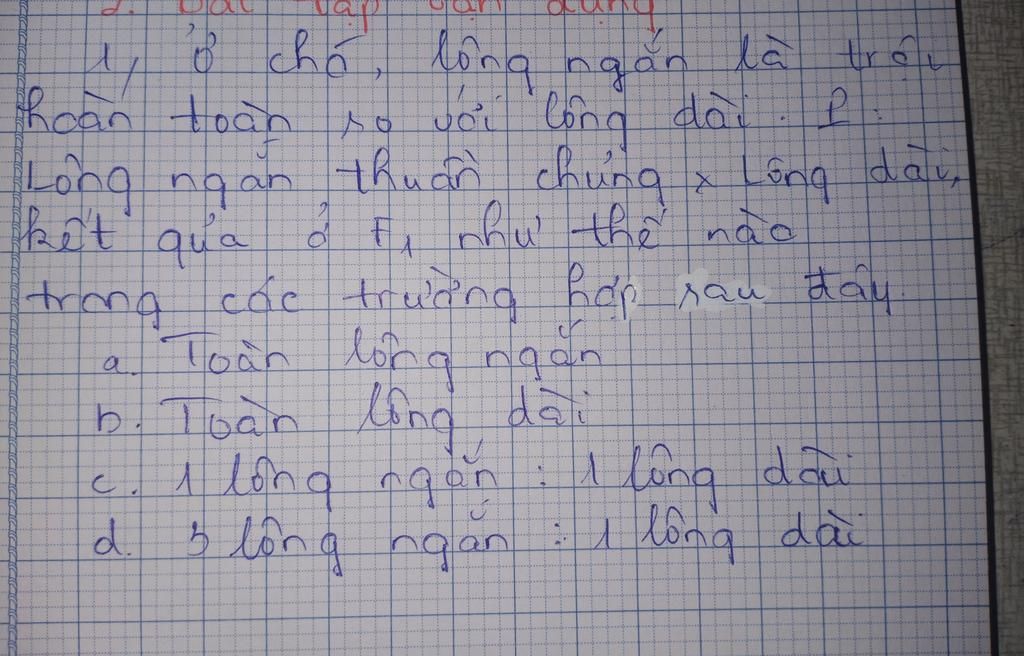 2. Bài tập vận dụng
1, Ở chó, lông ngắn là trội
hoàn toàn so với lông dài. P:
Lông ngắn thuần chủng x Lông dài,
kết quả ở F1 như thế nào
trong các trường hợp sau đây.
a. Toàn lông ngắn
b. Toàn lông dài
c. 1 lông ngắn : 1 lông dài
d. 3 lông ngắn : 1 lông dài